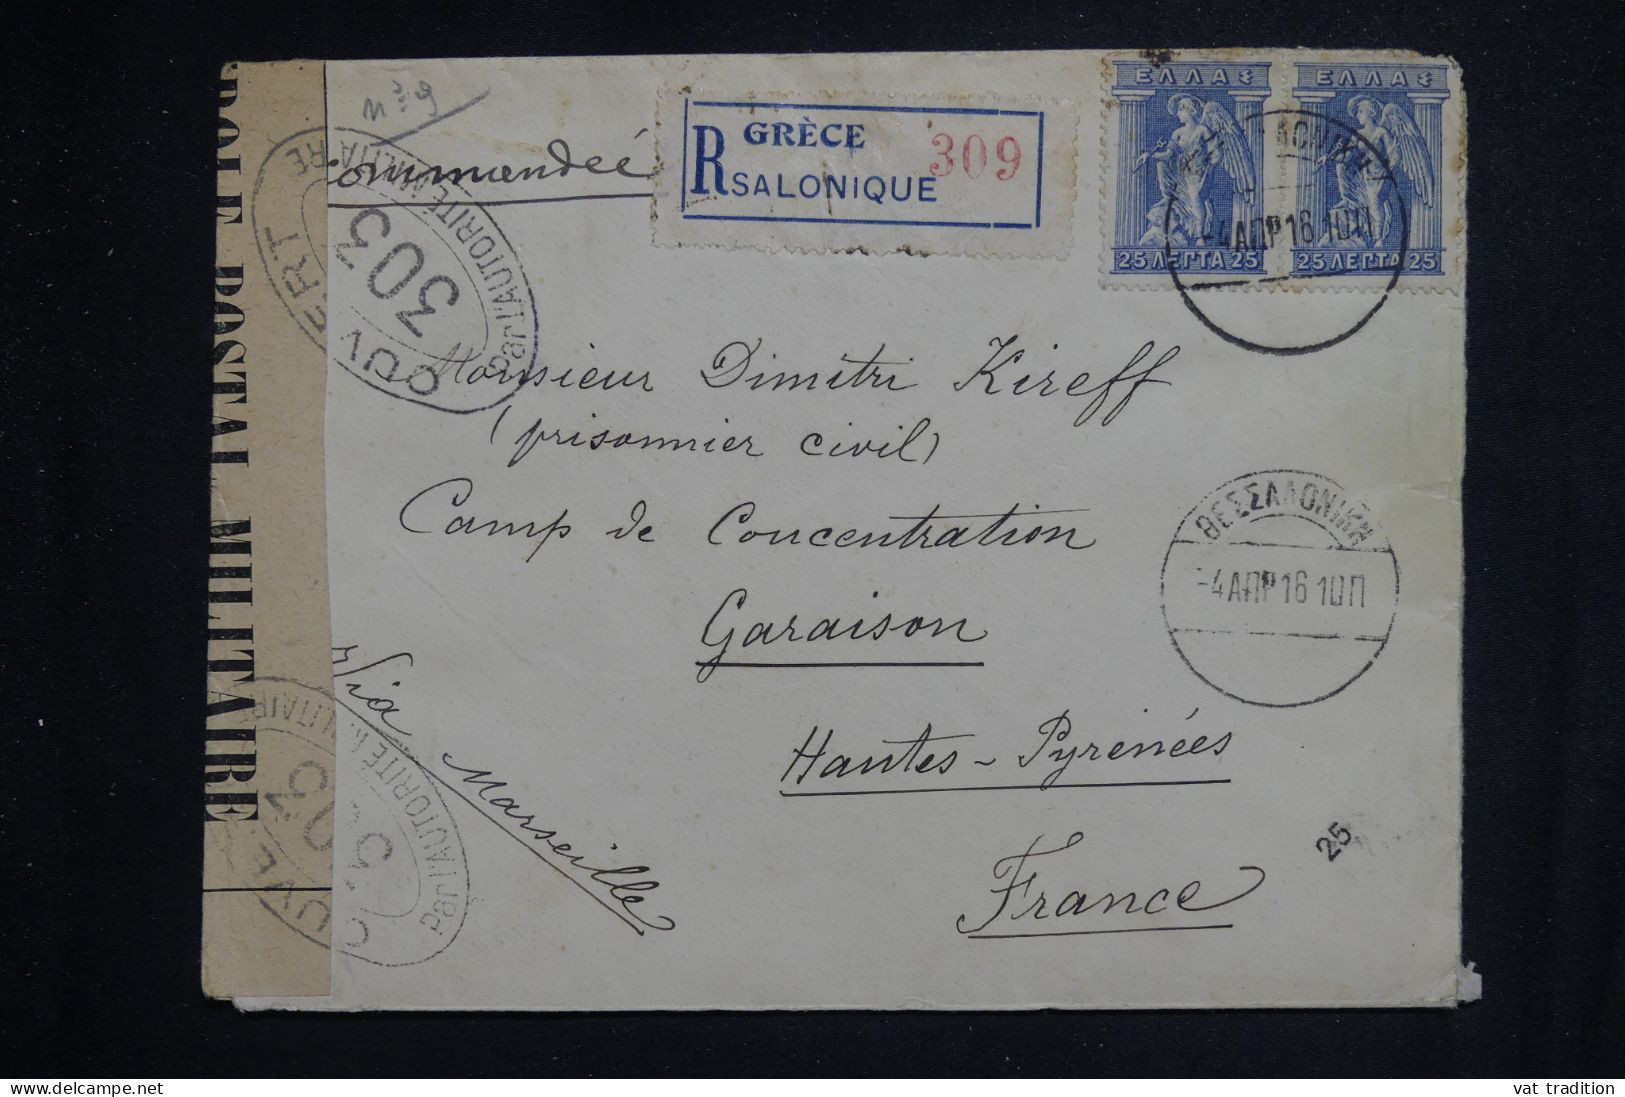 ommandée
R GRÈCE 309
SALONIQUE
ΕΛΛΑΣ ΕΛΛΑΣ
25 ΛΕΠΤΑ 25 25 ΛΕΠΤΑ 25
-4 ΑΠΡ 16 10Π
ΟLE POSTAL MILITAIRE
OUVERT
Par l'AUTORITÉ MILITAIRE
303
Monsieur Dimitri Kireff
(prisonnier civil)
Camp de Concentration
Garaison
Hautes-Pyrénées
France
Via Marseille
ΘΕΣΣΑΛΟΝΙΚΗ
-4 ΑΠΡ 16 10Π
25
Par l'AUTORITÉ MILITAIRE
vat tradition